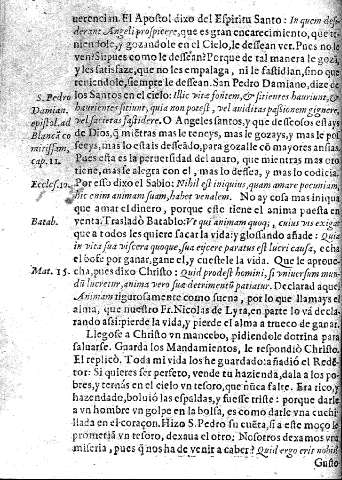 uerencian. El Apostol dixo del Espiritu Santo: In quem desi-
derant Angeli prospicere, que es gran encarecimiento, que te-
niendole, y gozandole en el Cielo, le dessean ver. Pues no le
ven? Si pues como le dessean? Porque de tal manera le goza,
y les satisfaze, que no les empalaga, ni le fastidian, sino que
teniendole, siempre le dessean. San Pedro Damiano, dize de
S. Pedro
los Santos en el cielo: Illic vitæ fontem, & sitientes hauriunt, &
Damian.
haurientes sitiunt, quia non potest, vel auiditas passionem gignere,
epistol. ad
vel sacietas fastidere. O Angeles santos, y que desseosos estays
Blancã co
de Dios, q̃ miẽtras mas le teneys, mas le gozays, y mas le pos
mitissam,
seeys, mas lo estais desseãdo, para gozalle cõ mayores ansias.
cap. 11.
Pues esta es la peruersidad del auaro, que mientras mas oro
tiene, mas se alegra con el, mas lo dessea, y mas lo codicia.
Eccles. 10.
Por esso dixo el Sabio: Nihil est iniquius, quam amare pecuniam,
hic enim animam suam, habet venalem. No ay cosa mas iniqua
que amar el dinero, porque este tiene el anima puesta en
Batab.
venta. Traslado Batablo: Vt qui animam quoq;, cuius vis exigat
que a todos les quiere sacar la vida: y glossando añade: Quia
in vita sua viscera quoque, sua eijcere paratus est lucri causa, echa
el bofe por ganar, gane el, y cuestele la vida. Que le aproue-
Mat. 15.
cha, pues dixo Christo: Quid prodest homini, si vniuersum mun-
dũ lucretur, anima vero suæ detrimentũ patiatur. Declarad aquel
Animam rigurosamente como suena, por lo que llamays el
alma, que nuestro Fr. Nicolas de Lyra, en parte lo va decla-
rando assi: pierde la vida, y pierde el alma a trueco de ganar.
Llegose a Christo vn mancebo, pidiendole dotrina para
saluarse. Guarda los Mandamientos, le respondiò Christo.
El replicò. Toda mi vida los he guardado: añadiò el Redẽ-
tor: Si quieres ser perfeto, vende tu hazienda, dala a los po-
bres, y ternàs en el cielo vn tesoro, que nũca falte. Era rico, y
hazendado, boluiò las espaldas, y fuesse triste: porque darle
a vn hombre vn golpe en la bolsa, es como darle vna cuchi-
llada en el coraçon. Hizo S. Pedro su cuẽta, si a este moço le
prometiã vn tesoro, dexaua el otro: Nosotros dexamos vna
miseria, pues q̃ nos ha de venir a caber? Quid ergo erit nobis?
Gusto